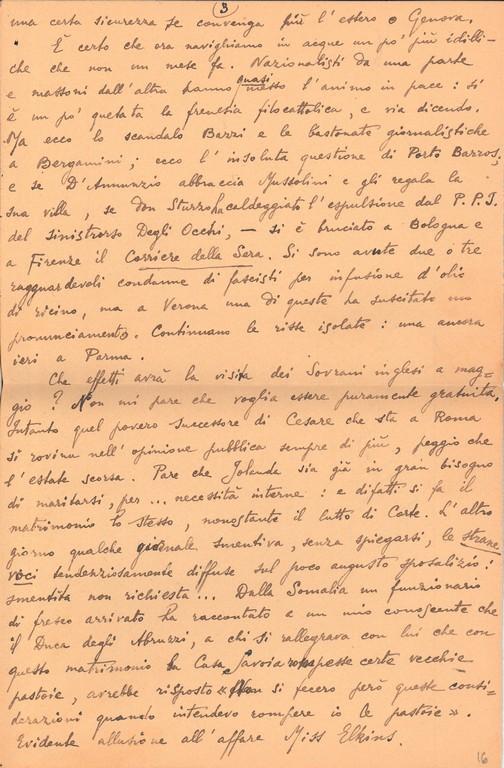 3
una certa sicurezza se convenga più l'estero o Genova.
È certo che ora navighiamo in acque un po' più idilli-
che che non un mese fa. Nazionalisti da una parte
e massoni dall'altra hanno quasi messo l'animo in pace: si
è un po' quetata la frenesia filocattolica, e via dicendo.
Ma ecco lo scandalo Bazzi e le bastonate giornalistiche
a Bergamini; ecco l'insoluta questione di Porto Barros,
e se D'Annunzio abbraccia Mussolini e gli regala la
sua villa, se Don Sturzo ha caldeggiato l'espulsione dal P.P.I.
del sinistrorso Degli Occhi, — si è bruciato a Bologna e
a Firenze il Corriere della Sera. Si sono avute due o tre
ragguardevoli condanne di fascisti per infusione d'olio
di ricino, ma a Verona una di queste ha suscitato uno
pronunciamento. Continuano le risse isolate: una ancora
ieri a Parma.
Che effetti avrà la visita dei Sovrani inglesi a mag=
gio? Non mi pare che voglia essere puramente gratuita.
Intanto quel povero successore di Cesare che sta a Roma
si rovina nell'opinione pubblica sempre di più, peggio che
l'estate scorsa. Pare che Jolanda sia già in gran bisogno
di maritarsi, per ... necessità interne: e difatti si fa il
matrimonio lo stesso, nonostante il lutto di Corte. L'altro
giorno qualche giornale smentiva, senza spiegarsi, le strane
voci tendenziosamente diffuse sul poco augusto sposalizio:
smentita non richiesta... Dalla Somalia un funzionario
di fresco arrivato ha raccontato a un mio conoscente che
il Duca degli Abruzzi, a chi si rallegrava con lui che con
questo matrimonio la Casa Savoia rompesse certe vecchie
pastoie, avrebbe risposto «Non si fecero però queste consi=
derazioni quando intendevo rompere io le pastoie».
Evidente allusione all'affare Miss Elkins.
16